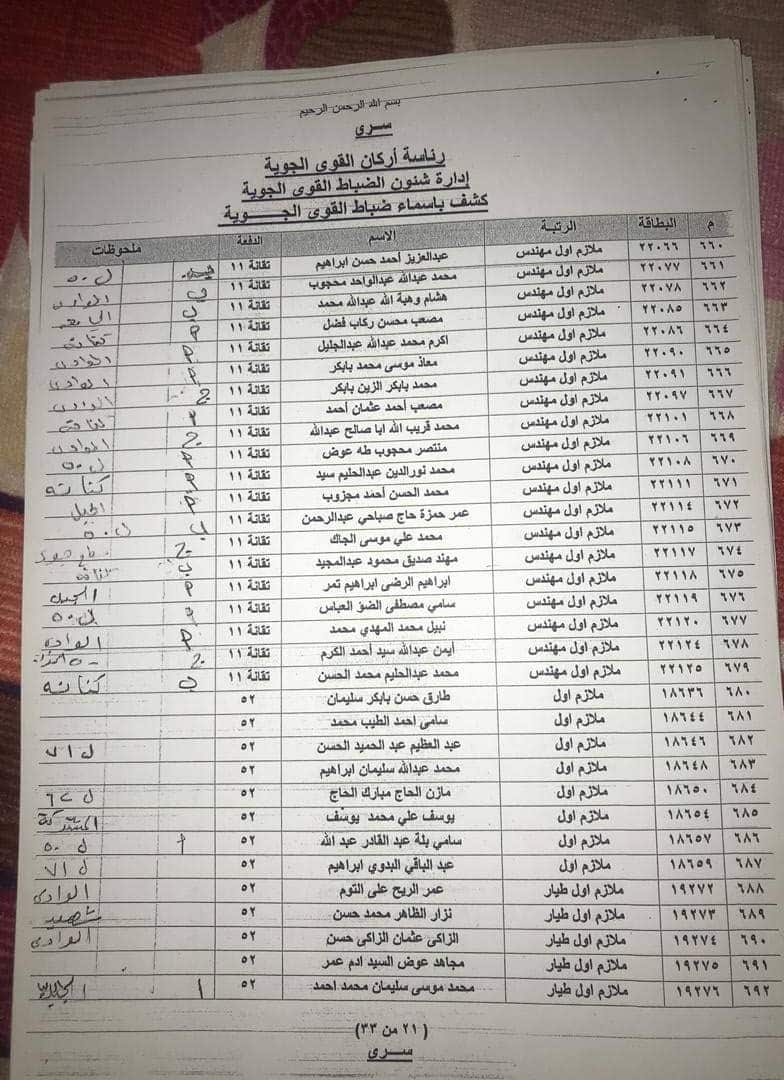 بسم الله الرحمن الرحيم
سرى
رئاسة أركان القوى الجوية
إدارة شئون الضباط القوى الجوية
كشف باسماء ضباط القوى الجوية
م البطاقة الرتبة الاسم الدفعة ملحوظات
٦٦٠ ٢٢٠٦٦ ملازم اول مهندس عبدالعزيز أحمد حسن ابراهيم تقانة ١١
٦٦١ ٢٢٠٧٧ ملازم اول مهندس محمد عبدالله عبدالواحد محجوب تقانة ١١
٦٦٢ ٢٢٠٧٨ ملازم اول مهندس هشام وهبة الله عبدالله محمد تقانة ١١ الوادى
٦٦٣ ٢٢٠٨٥ ملازم اول مهندس مصعب محسن ركاب فضل تقانة ١١
٦٦٤ ٢٢٠٨٦ ملازم اول مهندس اكرم محمد عبدالله عبدالجليل تقانة ١١
٦٦٥ ٢٢٠٩٠ ملازم اول مهندس معاذ موسى محمد بابكر تقانة ١١ الوادى
٦٦٦ ٢٢٠٩١ ملازم اول مهندس محمد بابكر الزين بابكر تقانة ١١ الوادى
٦٦٧ ٢٢٠٩٧ ملازم اول مهندس مصعب أحمد عثمان أحمد تقانة ١١ ج الوادى
٦٦٨ ٢٢١٠١ ملازم اول مهندس محمد قريب الله ابا صالح عبدالله تقانة ١١
٦٦٩ ٢٢١٠٦ ملازم اول مهندس منتصر محجوب طه عوض تقانة ١١ ج الوادى
٦٧٠ ٢٢١٠٨ ملازم اول مهندس محمد نورالدين عبدالحليم سيد تقانة ١١
٦٧١ ٢٢١١١ ملازم اول مهندس محمد الحسن أحمد مجزوب تقانة ١١ كنانه
٦٧٢ ٢٢١١٤ ملازم اول مهندس عمر حمزة حاج صباحي عبدالرحمن تقانة ١١ الجبل
٦٧٣ ٢٢١١٥ ملازم اول مهندس محمد علي موسى الجاك تقانة ١١
٦٧٤ ٢٢١١٧ ملازم اول مهندس مهند صديق محمود عبدالمجيد تقانة ١١ ج
٦٧٥ ٢٢١١٨ ملازم اول مهندس ابراهيم الرضى ابراهيم تمر تقانة ١١
٦٧٦ ٢٢١١٩ ملازم اول مهندس سامي مصطفى الضؤ العباس تقانة ١١ الجبل
٦٧٧ ٢٢١٢٠ ملازم اول مهندس نبيل محمد المهدي محمد تقانة ١١
٦٧٨ ٢٢١٢٤ ملازم اول مهندس أيمن عبدالله سيد أحمد الكرم تقانة ١١
٦٧٩ ٢٢١٢٥ ملازم اول مهندس محمد عبدالحليم محمد الحسن تقانة ١١ كنانه
٦٨٠ ١٨٦٣٦ ملازم اول طارق حسن بابكر سليمان ٥٢
٦٨١ ١٨٦٤٤ ملازم اول سامى احمد الطيب محمد ٥٢
٦٨٢ ١٨٦٤٦ ملازم اول عبد العظيم عبد الحميد الحسن ٥٢
٦٨٣ ١٨٦٤٨ ملازم اول محمد عبدالله سليمان ابراهيم ٥٢
٦٨٤ ١٨٦٥٠ ملازم اول مازن الحاج مبارك الحاج ٥٢
٦٨٥ ١٨٦٥٤ ملازم اول يوسف علي محمد يوسف ٥٢
٦٨٦ ١٨٦٥٧ ملازم اول سامي بلة عبد القادر عبد الله ٥٢
٦٨٧ ١٨٦٥٩ ملازم اول عبد الباقي البدوي ابراهيم ٥٢
٦٨٨ ١٩٢٧٢ ملازم اول طيار عمر الريح على التوم ٥٢ الوادى
٦٨٩ ١٩٢٧٣ ملازم اول طيار نزار الظاهر محمد حسن ٥٢ شهيد
٦٩٠ ١٩٢٧٤ ملازم اول طيار الزاكى عثمان الزاكى حسن ٥٢ الوادى
٦٩١ ١٩٢٧٥ ملازم اول طيار مجاهد عوض السيد ادم عمر ٥٢
٦٩٢ ١٩٢٧٦ ملازم اول طيار محمد موسى سليمان محمد احمد ٥٢
(٢١ من ٣٣)
سرى